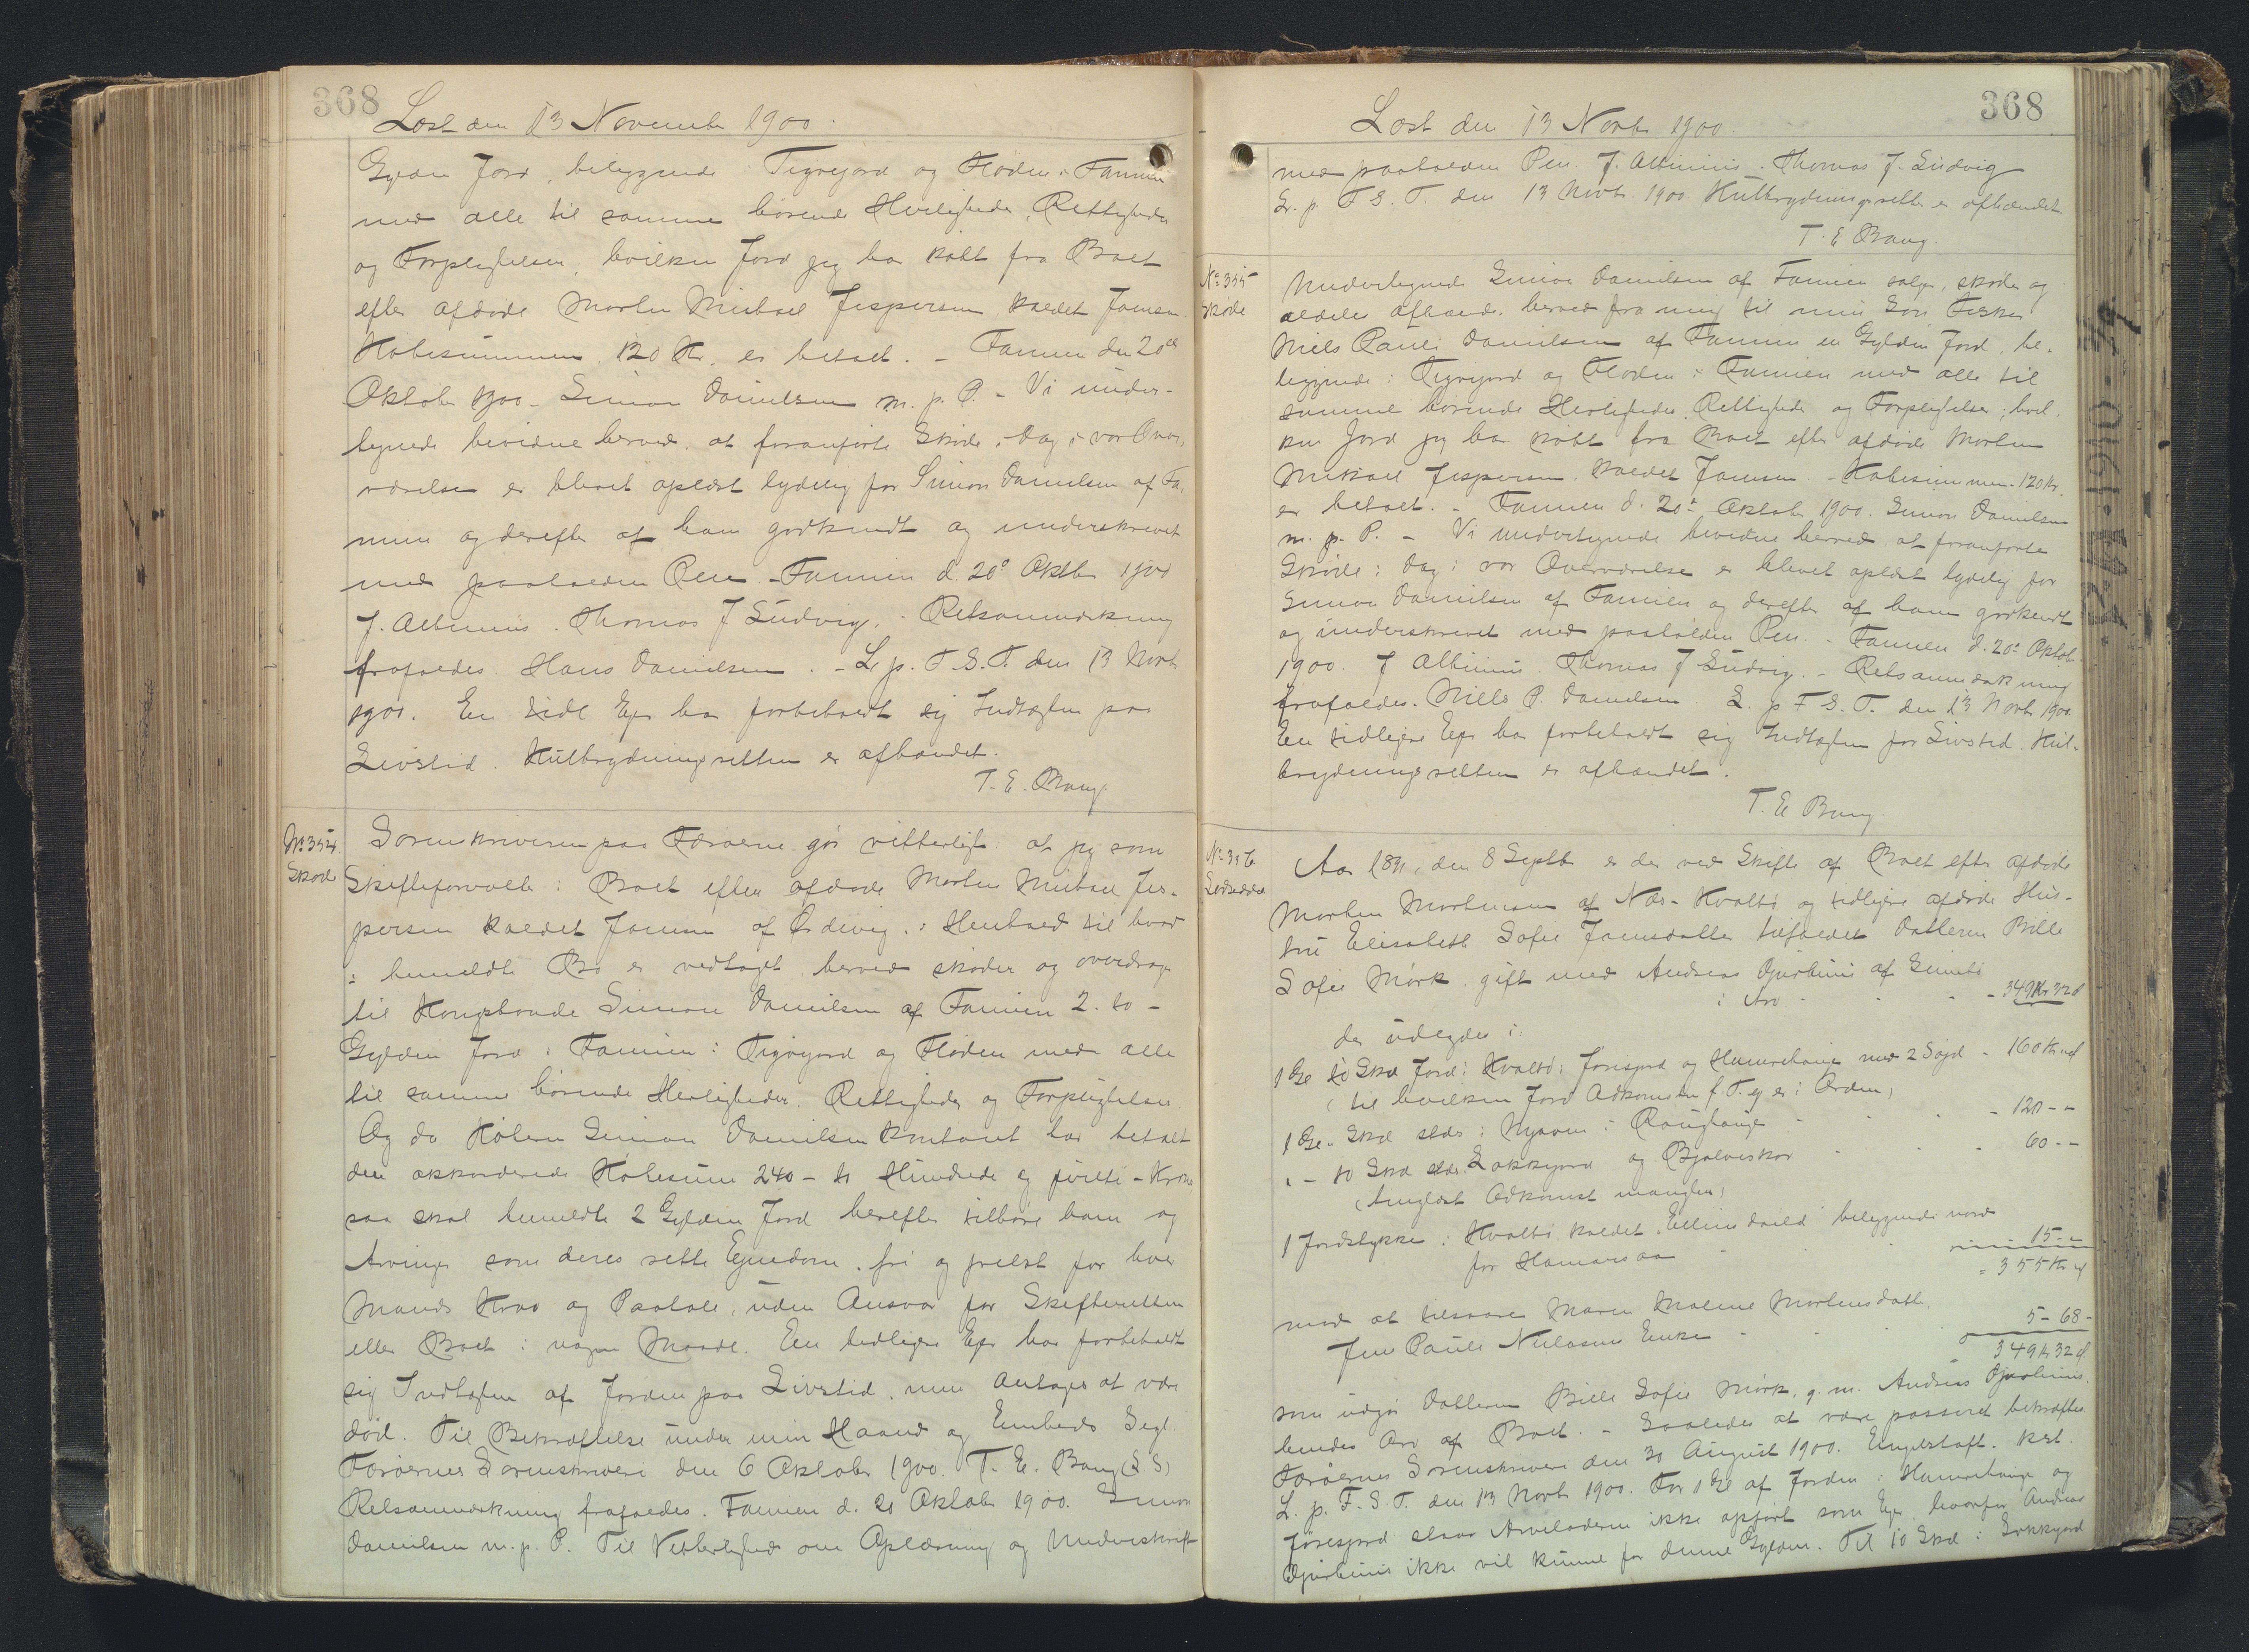 368
Læst den 13 November 1900.
Gylden Jord, beliggende i Tigvejord og Fløden i Famien
med alle til samme hørende Herligheder, Rettigheder
og Forpligtelser, hvilken Jord jeg har købt fra Boet
efter afdøde Morten Michael Jespersen kaldet Joensen.
Købesummen 120 Kr. er betalt. – Famien den 20de
Oktober 1900. Simon Danielsen m. p. P. – Vi under-
tegnede bevidne herved, at foranførte Skøde i Dag i vor Over-
værelse er blevet oplæst lydelig for Simon Danielsen af Fa-
mien og derefter af ham godkendt og underskrevet
med paaholden Pen. – Famien d. 20d Oktbr 1900
J. Albinus. Thomas J Ludvig. – Retsanmærkning
frafaldes Hans Danielsen. – L. p. F. S. T. den 13 Novb
1900. En tidl Ejer har forbeholdt sig Indtægten paa
Livstid. Kulbrydningsretten er afhændet.
T. E. Bang.
No 354.
Skøde
Sorenskriveren paa Færøerne gør vitterligt: at jeg som
Skifteforvalter i Boet efter afdøde Morten Michael Jes-
persen kaldet Joensen af Ørdevig, i Henhold til hvad
i bemeldte Bo er vedtaget herved skøder og overdrager
til Kongsbonde Simon Danielsen af Famien 2. to –
Gylden Jord i Famien i Tigvejord og Fløden med alle
til samme hørende Herligheder, Rettigheder og Forpligtelser.
Og da Køberen Simon Danielsen kontant har betalt
den akkorderede Købesum 240 – to Hundrede og førti – Kroner
saa skal bemeldte 2 Gylden Jord herefter tilhøre ham og
Arvinger som deres rette Ejendom, fri og frelst for hver
Mands Krav og Paatale, uden Ansvar for Skifteretten
eller Boet i nogen Maade. En tidligere Ejer har forbeholdt
sig Indtægten af Jorden paa Livstid, men antages at være
død. Til Bekræftelse under min Haand og Embeds Segl.
Færøernes Sorenskriveri den 6 Oktober 1900. T. E. Bang (L. S)
Retsanmærkning frafaldes. Famien d. 20 Oktober 1900. Simon
Danielsen m. p. P. Til Vitterlighed om Oplæsning og Underskrift
368
Læst den 13 Novbr 1900.
med paaholden Pen. J. Albinus. Thomas J. Ludvig
L. p. F. S. T. den 13 Novbr. 1900 Kulbrydningsretten er afhændet.
T. E. Bang.
No 355
Skøde
Undertegnede Simon Danielsen af Famien sælger, skøder og
aldeles afhænder herved fra mig til min Søn Fisker
Niels Pauli Danielsen af Famien en Gylden Jord, be-
liggende i Tigvejord og Fløden i Famien med alle til
samme hørende Herligheder, Rettigheder og Forpligtelser, hvil-
ken Jord jeg har købt fra Boet efter afdøde Morten
Mikael Jespersen, kaldet Joensen. – Købesummen 120 Kr.
er betalt. – Famien d. 20d Oktober 1900. Simon Danielsen
m. p. P. – Vi undertegnede bevidne herved at foranførte
Skøde i Dag i vor Overværelse er blevet oplæst lydelig for
Simon Danielsen af Famien og derefter af ham godkendt
og underskrevet med paaholden Pen. – Famien d. 20d Oktob
1900. J Albinus. Thomas J Ludvig. – Retsanmærkning
frafaldes. Niels P. Danielsen. L. p F. S. T. den 13 Novb 1900
En tidligere Ejer har forbeholdt sig Indtægten for Livstid. Kul-
brydningsretten er afhændet.
T. E Bang
No 356
Lodseddel
Aar 1891, den 8 Septb er der ved Skifte af Boet efter afdøde
Morten Mortensen af Nes – Hvalbø og tidligere afdøde Hus-
tru Elisabeth Sofie Joensdatter tilfaldet Datteren Bille
Sofie Mørk, gift med Andreas Djurhuus af Sumbø
i Arv – 349 Kr 32 ø
der udlægdes i:
1 Gl 10 Skd Jord i Hvalbø i Føresjord og Hamrehauge med 2 Søjd – 160 Kr "ø
(til hvilken Jord Adkomsten f. T. ej er i Orden)
1 Gl " Skd sstds i Nysom i Røughauge – 120 – –
" – 10 Skd sstds Lokkejord og Bjalveskor 60 – –
(tinglæst Adkomst mangler)
1 Jordstykke i Hvalbø kaldet "Ellins " beliggende nord
for Hamarsaa 15 – –
= 355 Kr ø
mod at tilsvare Maren Malene Mortensdatter,
Jens Pauli Nielsens Enke 5 – 68 –
349 K 32 ø
som udgør Datteren Bille Sofie Mørk, g. m. Andreas Djurhuus.
hendes Arv af Boet. – Saaledes at være passeret bekræftes
Færøernes Sorenskriveri den 30 August 1900. Engelstoft. kst.
L. p. F. S. T. den 13 Novb 1900. For 1 Gl af Jorden i Hamrehauge og
Føresjord staar Arveladeren ikke opført som Ejer, hvorfor Andreas
Djurhuus ikke vil kunne faa denne Gylden. Til 10 Skd i Lokkejord